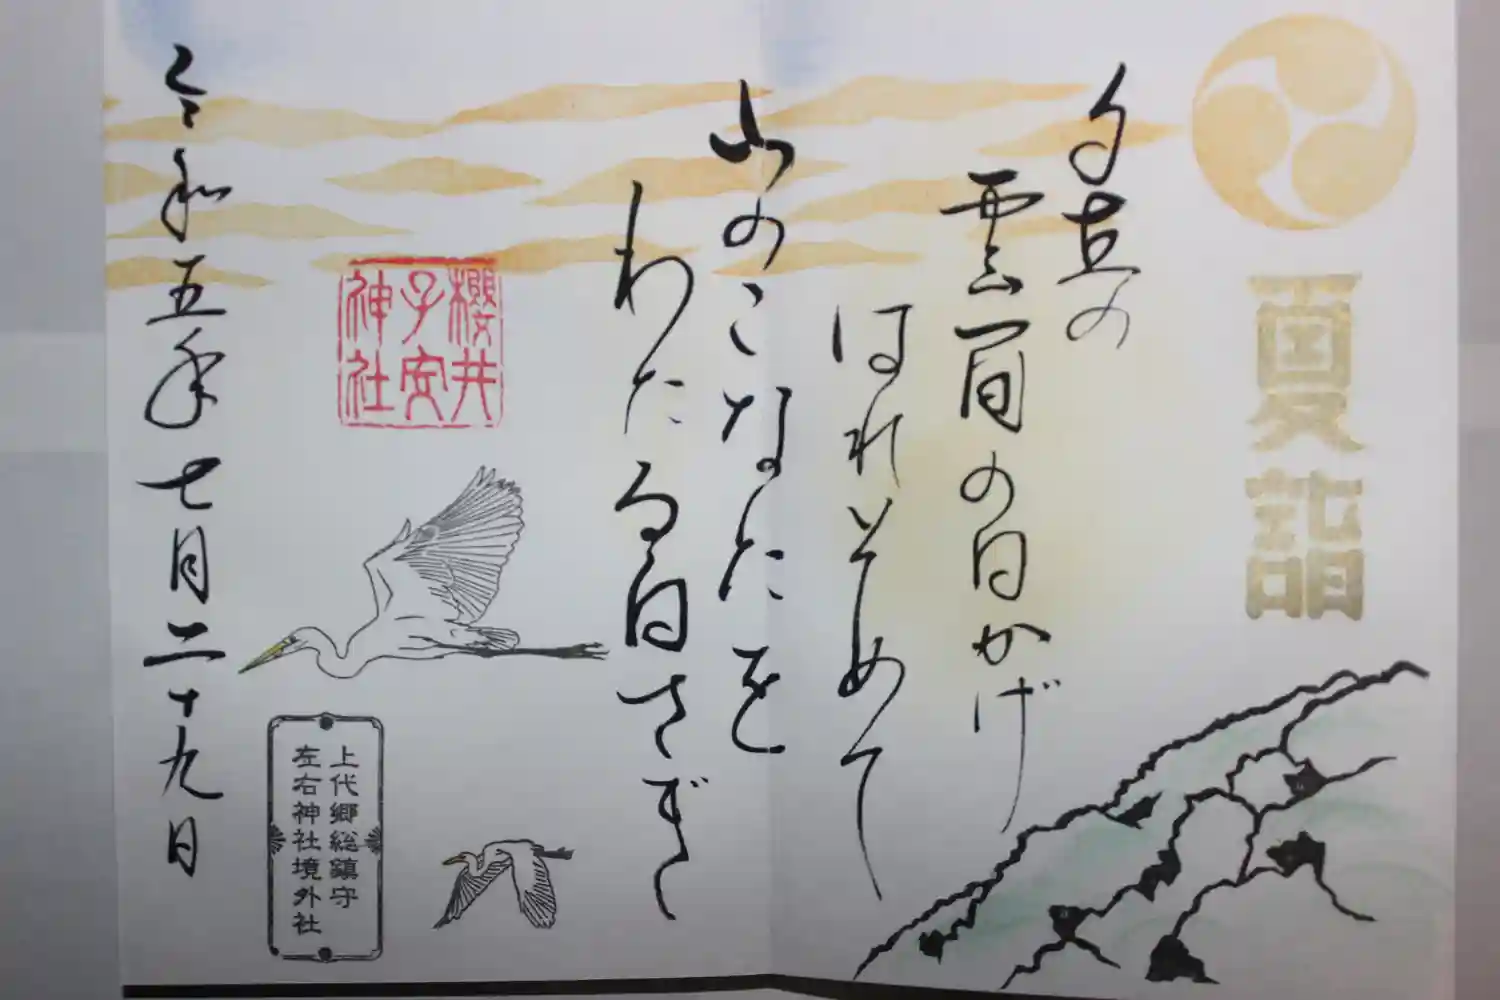 夏詣
夕立の
雲間の日かげ
はれそめて
山のこなたを
わたる白さぎ
櫻井
子安
神社
上代郷総鎮守
左右神社境外社
令和五年七月二十九日